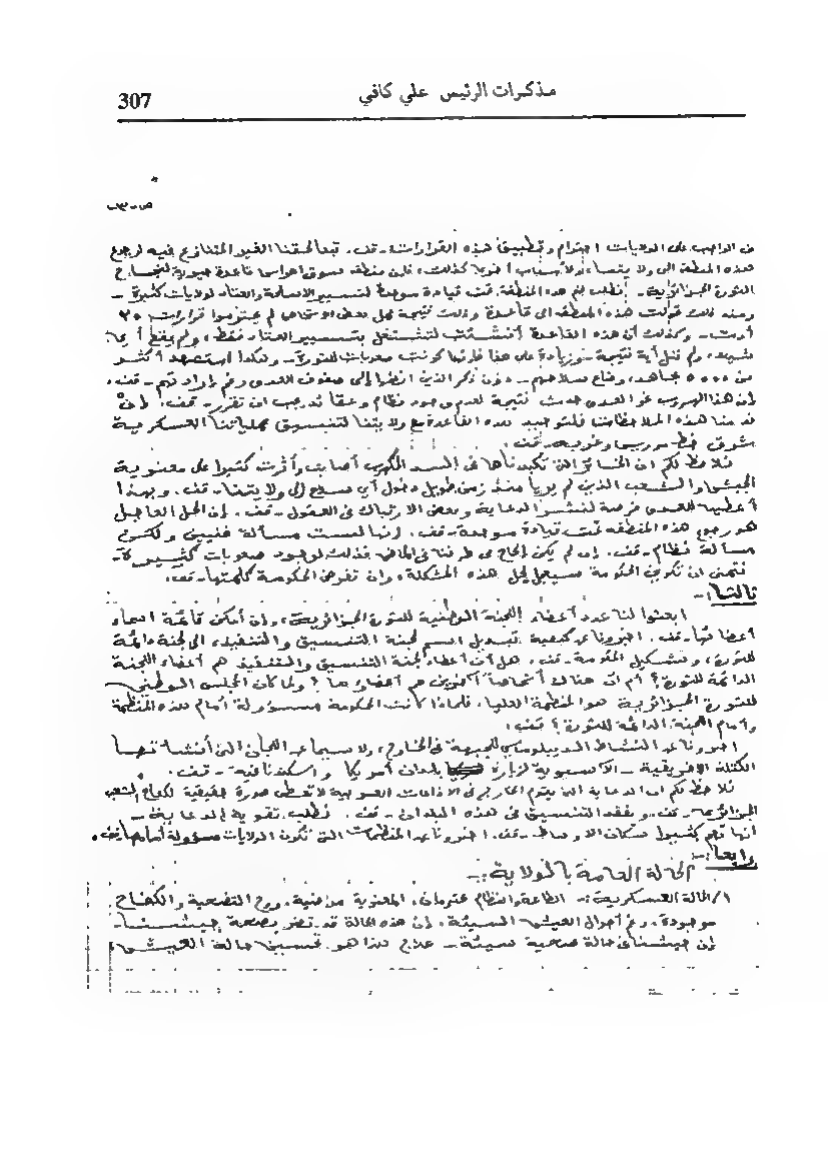 307
مذكرات الرئيس علي كافي
ص-٣-
من الواجب على الولايات احترام وتطبيق هذه القرارات-قف. تبعا لحقنا الغير المتنازع فيه لرجوع
هذه المنطقة الى ولا يتنا، ولأسباب أخرى كذلك، فإن منطقة سوق اهراس قاعدة حيوية لنجاح
الثورة الجزائرية-. أنطلب ضم هذه المنطقة تحت قيادة موحدة لتسيير الاسلحة والعتاد لولايات كثيرة-
ومنه فلت تحولت هذه المنطقة الى قاعدة وذلك نتيجة عمل بعض الاشخاص لم يحترموا قرارات ٢٠
أوت-. وكذلك أن هذه القاعدة أنشئت لتشتغل بتسيير العتاد فقط، ولم يعط أي
شيء، ولم تنل أية نتيجة-وزيادة على هذا فإنها كونت صعوبات للثورة-. وهكذا استشهد أكثر
من ٥٠٠٠ مجاهد، وضاع سلاحهم-دون ذكر الذين انضموا إلى صفوف العدو رغم إرادتهم-قف.
إن هذا الهروب نحو العدو حدث نتيجة لعدم وجود نظام وعقائد يجب ان تقرر-قف. إن
قدمنا هذه الملاحظات فلتوحيد هذه القاعدة مع ولايتنا لتنسيق عملياتنا العسكرية
شرق خط-موريس وغربه-قف.
نلاحظ لكم ان الخسائر التي تكبدناها في السد المكهرب أصابت وأثرت كثيرا على معنوية
الجيش والشعب الذين لم يريا منذ زمن طويل دخول أي سلاح إلى ولايتنا-قف. وبهذا
أعطينا للعدو فرصة لنشر الدعاية وبعض الارتباك في العقول-قف. إن الحل العاجل
هو رجوع هذه المنطقة تحت قيادة موحدة-قف. انها ليست مسألة فنيين ولكن
مسألة نظام-قف. إن لم يكن إلحاح من طرفنا في الماضي فذلك لوجود صعوبات كثيرة-
نتمنى ان تكوين الحكومة سيعجل لحل هذه المشكلة، وان تفرض الحكومة كلمتها-قف.
ثالثا:-
ابعثوا لنا عدد أعضاء اللجنة الوطنية للثورة الجزائرية، وإن أمكن قائمة اسماء
أعضائها-قف. اخبرونا عن كيفية تبديل اسم لجنة التنسيق والتنفيذ، الى لجنة دائمة
للثورة، وتشكيل الحكومة-قف. هل أن أعضاء لجنة التنسيق والتنفيذ هم أعضاء اللجنة
الدائمة للثورة؟ أم ان هناك أشخاصا آخرين هم أعضاؤها؟ ولما كان المجلس الوطني
للثورة الجزائرية هو المنظمة العليا، فلماذا كانت الحكومة مسؤولة أمام هذه المنظمة
وأمام الهيئة الدائمة للثورة؟ قف.
اخبرونا عن النشاط الديبلوماسي للجبهة في الخارج، ولا سيما عن اللجان التي أنشأتها
الكتلة الإفريقية-الآسيوية لزيارة بلدان أمريكا واسكندنافية-قف.
نلاحظ لكم ان الدعاية التي يقوم الخارج في الاذاعات العربية لا تعطي صورة حقيقية لكفاح الشعب
الجزائري-قف. ونفقد التنسيق في هذه البلدان-قف. نطلب تقوية الدعاية-
انها تهم كثيرا سكان الأوساط-قف. اخبرونا عن المنظمات التي تكون الولايات مسؤولة أمامها قف.
رابعا:-
الحالة العامة بالولاية:-
١/الحالة العسكرية:- الطاعة والنظام محترمان، المعنوية مرضية، روح التضحية والكفاح
موجودة، رغم أحوال العيش السيئة، إن هذه الحالة قد تضر بصحة جيشنا-
إن جيشنا في حالة صحية سيئة-علاج هذا هو تحسين حالة العيش